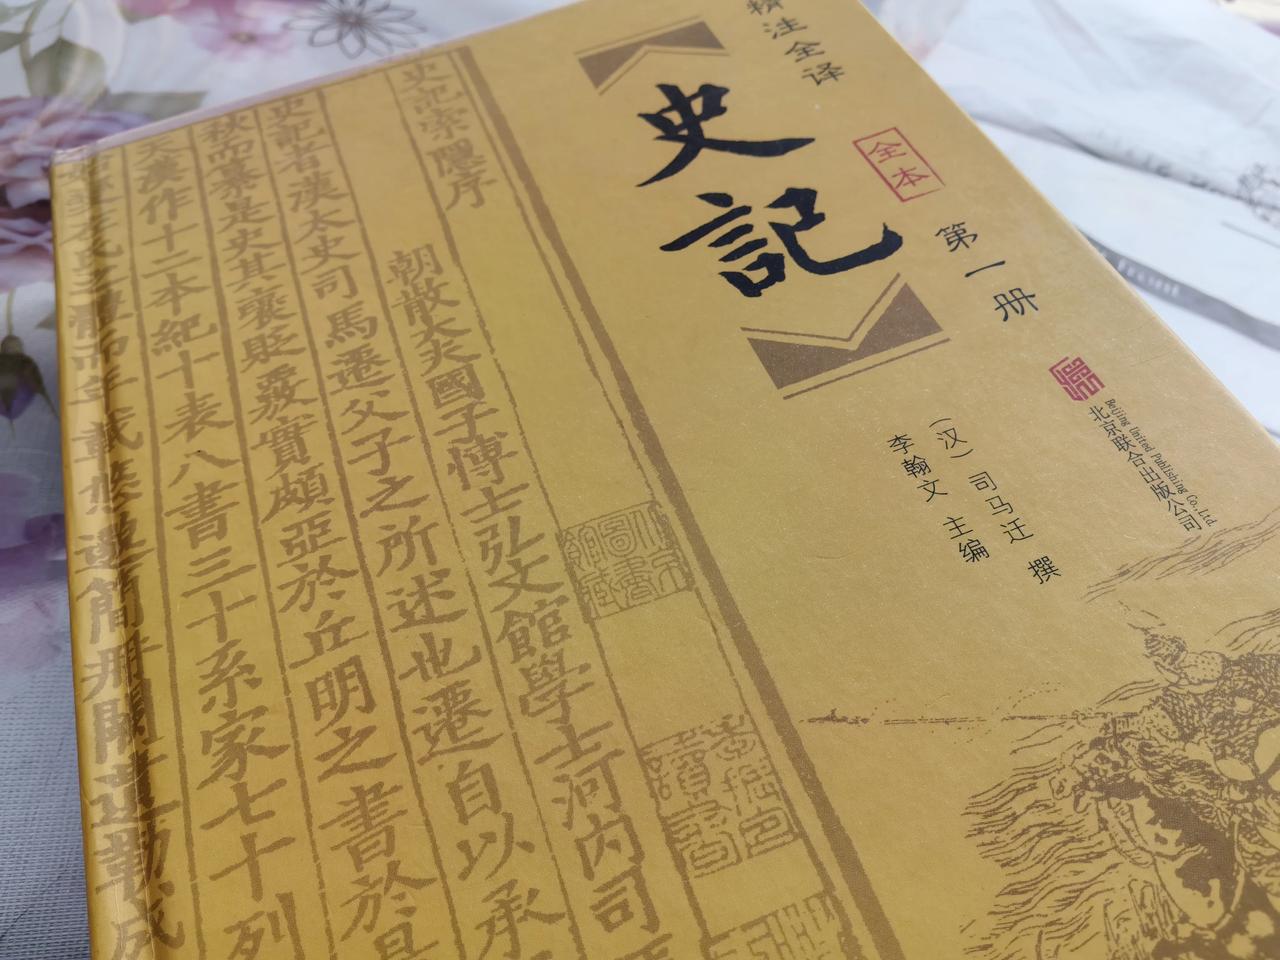 精注全译
史記
全本
第一册
(汉)司马迁 撰
李翰文 主编
北京联合出版公司
Beijing United Publishing Co.,Ltd.
史記索隱序
朝散大夫國子博士弘文館學士河内司
史記者漢太史司馬遷父子之所述也遷自以承
秋而纂是史其襃貶覈實頗亞於丘明之書於是
天漢作十二本紀十表八書三十系家七十列
年載悠邈簡册闕遺勒成